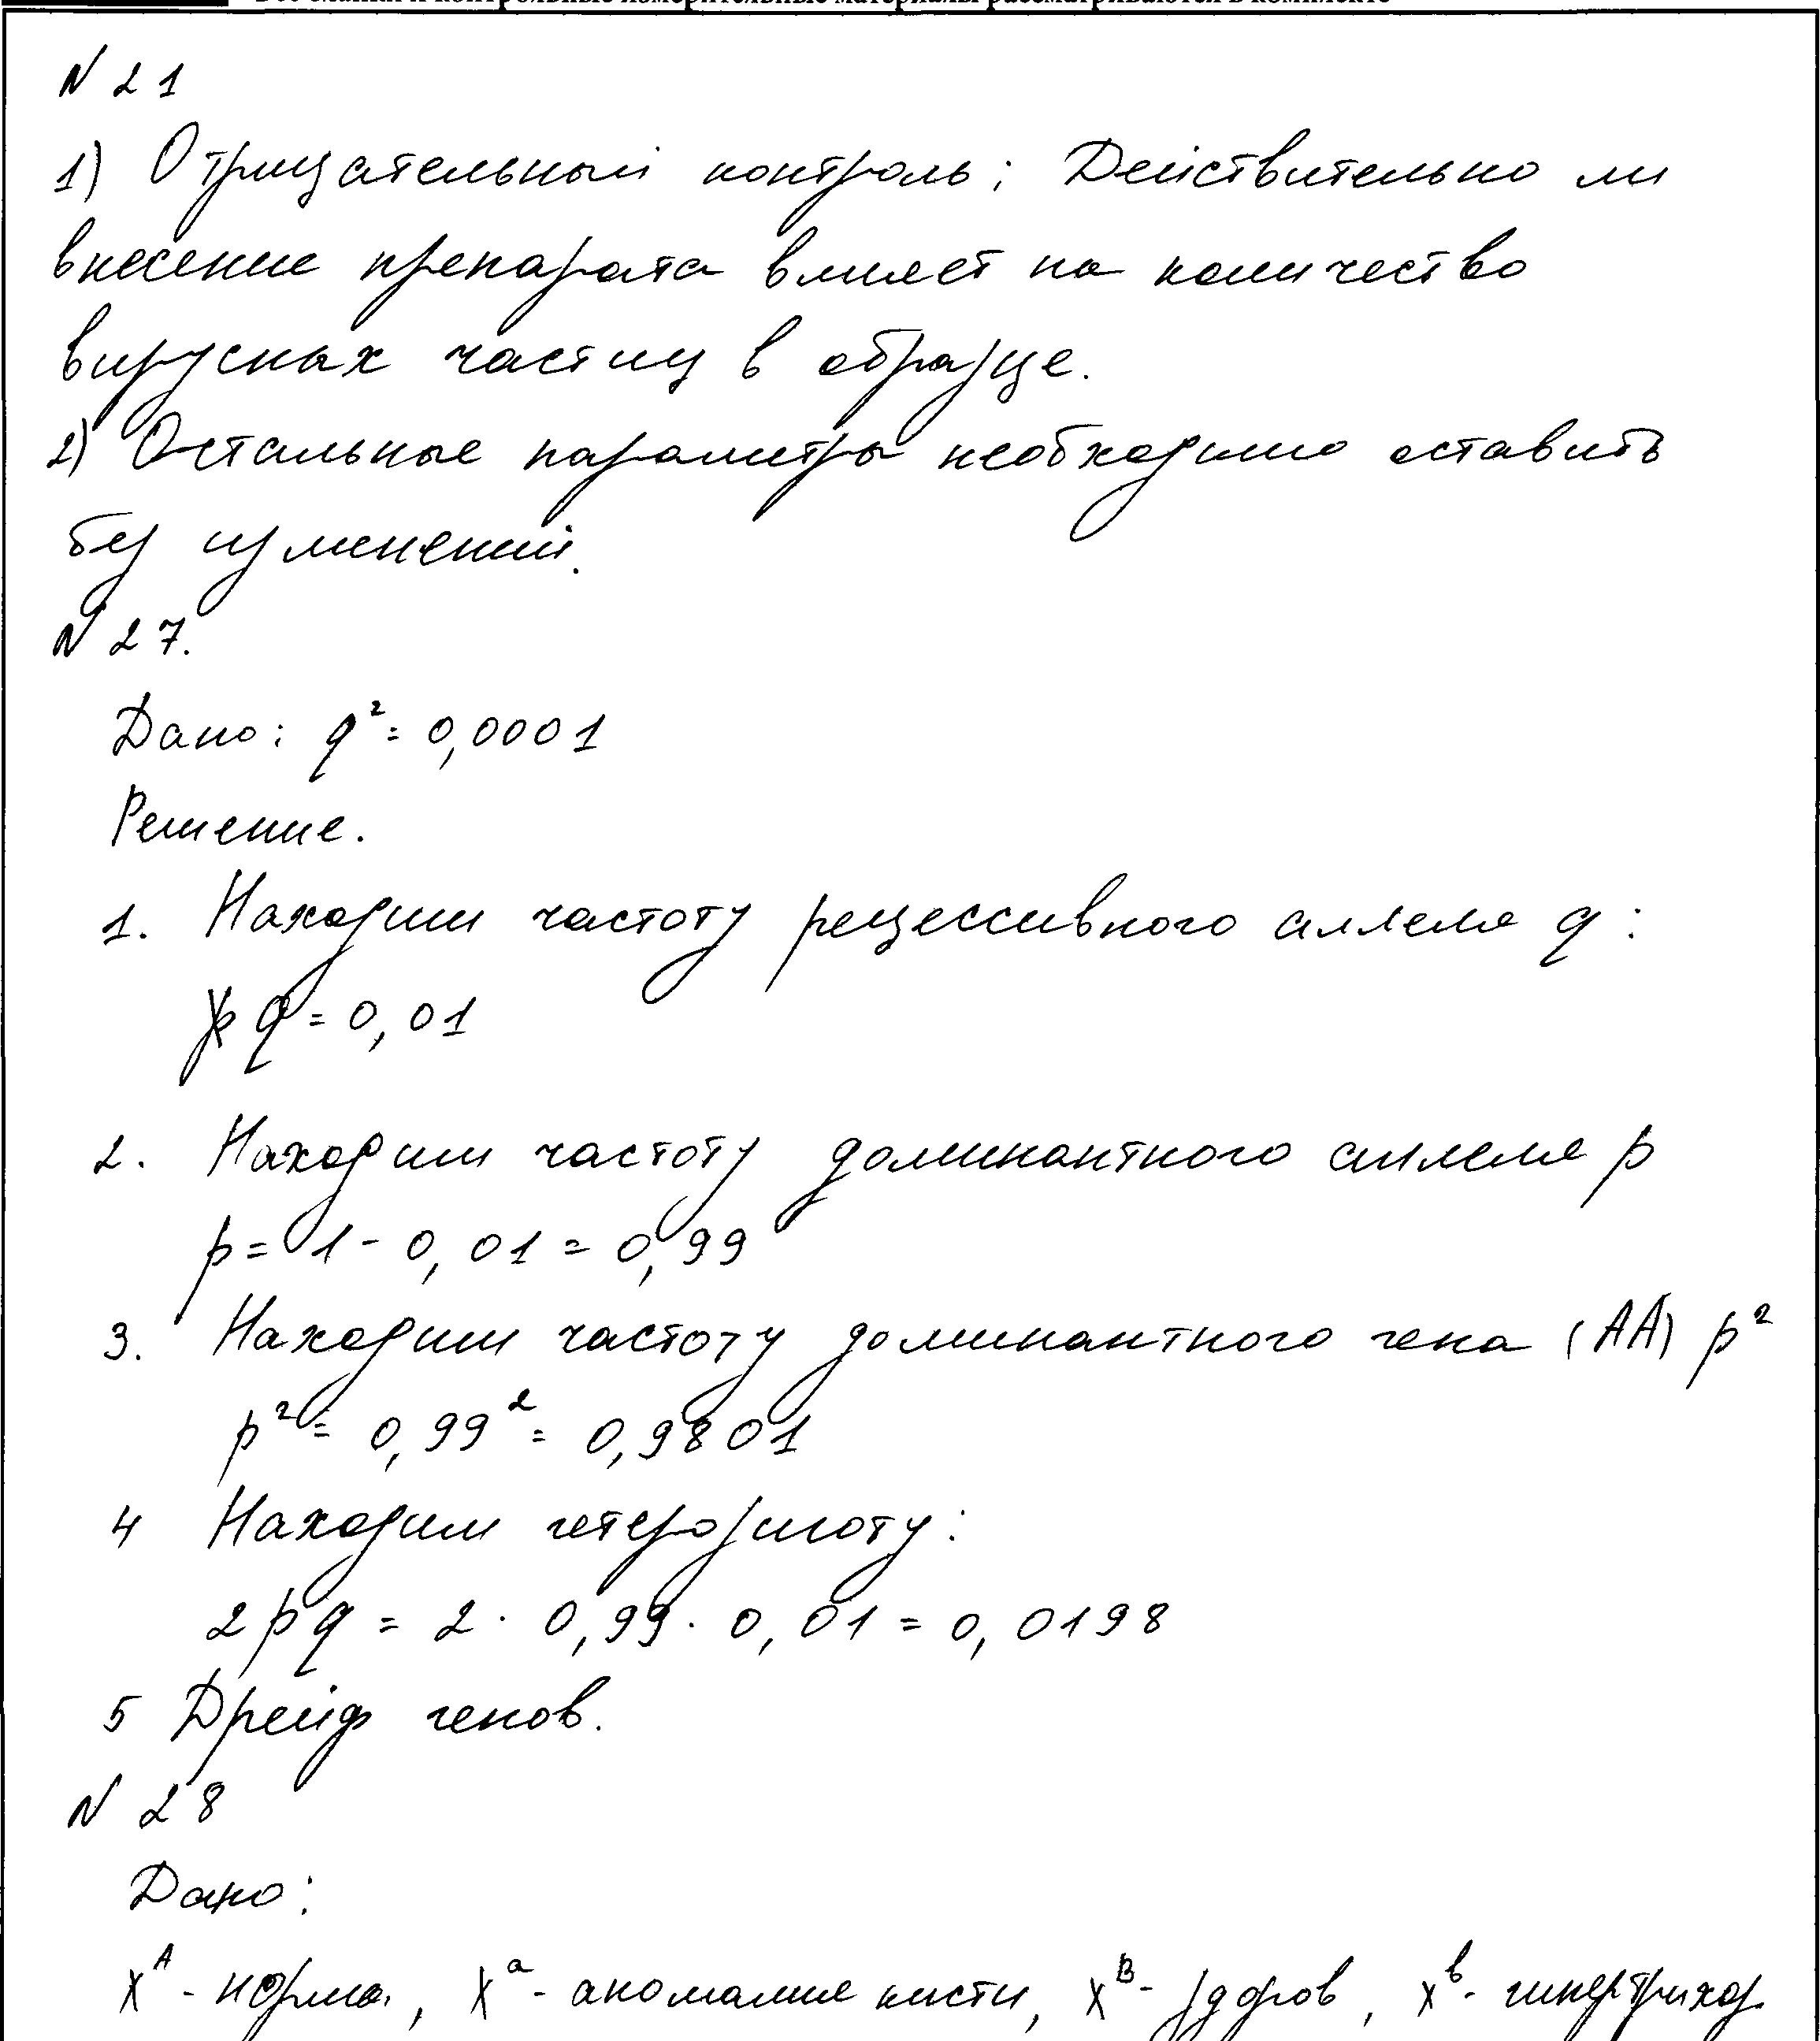 Все бланки и контрольные измерительные материалы рассматриваются в комплекте
N 21
1) Отрицательный контроль; Действительно ли
внесение препарата влияет на количество
вирусных частиц в образце.
2) Остальные параметры необходимо оставить
без изменений.
N 27.
Дано: q² = 0,0001
Решение.
1. Находим частоту рецессивного аллеля q:
q = 0,01
2. Находим частоту доминантного аллеля p
p = 1 - 0,01 = 0,99
3. Находим частоту доминантного гена (AA) p²
p² = 0,99² = 0,9801
4 Находим гетерозиготу:
2pq = 2 · 0,99 · 0,01 = 0,0198
5 Дрейф генов.
N 28
Дано:
Xᴬ - норма, Xᵃ - аномалия кисти, Xᴮ - здоров, Xᵇ - гипертрихоз